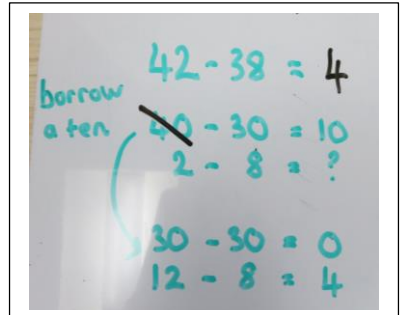 42 - 38 = 4
borrow
a ten
40 - 30 = 10
2 - 8 = ?
30 - 30 = 0
12 - 8 = 4